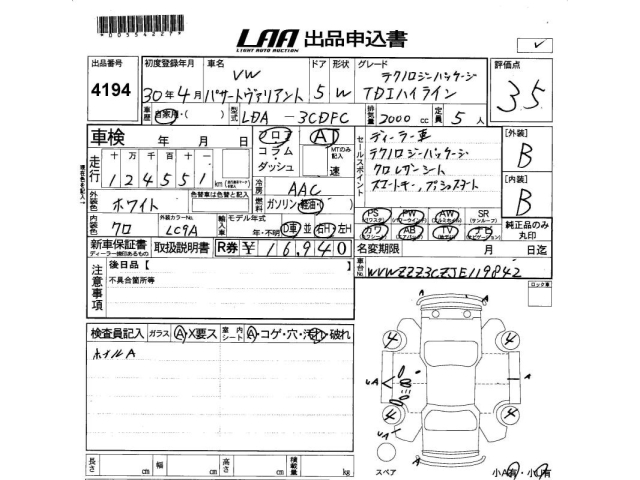 *0055422?9*
LAA 出品申込書
LIGHT AUTO AUCTION
出品番号
4194
初度登録年月 車名 ドア 形状 グレード
VW テクノロジーパッケージ
30年4月 パサートヴァリアント 5 W TDIハイライン
評価点
3.5
車歴 自家用・( ) 型式 LDA - 3CDFC 排気量 2000 cc 定員 5人
車検 年 月 日
フロア AT
コラム・ダッシュ MTのみ記入 速
セールスポイント
ディーラー車
テクノロジーパッケージ
クロレザーシート
スマートキー、プッシュスタート
[外装]
B
[内装]
B
走行 十万千百十一
124551 km
冷房 AAC
外装色 色替車は色替と記入
ホワイト
燃料 ガソリン・軽油・( )
内装色 クロ 外装カラーNo. LC9A
輸入車 モデル年式 年・不明 D車 並 右H・左H
PS PW AW SR
(パワステ) (パワーウインドウ) (アルミホイル) (サンルーフ)
カワ AB TV ナビ
純正品のみ丸印
新車保証書 取扱説明書 R券 ¥16,940
ディーラー検印あるもの
名変期限 月 日迄
車台No. WVWZZZ3CZJE119842
注意事項
後日品【 】
不具合箇所等
ロック車
検査員記入 ガラス A・X要ス 室内シート A・コゲ・穴・汚れ・破れ
ホイルA
A
A
4 4
UA A
4 4
UA
A
長さ cm 幅 cm 高さ cm 積載量 kg
スペア 小A有・小U有